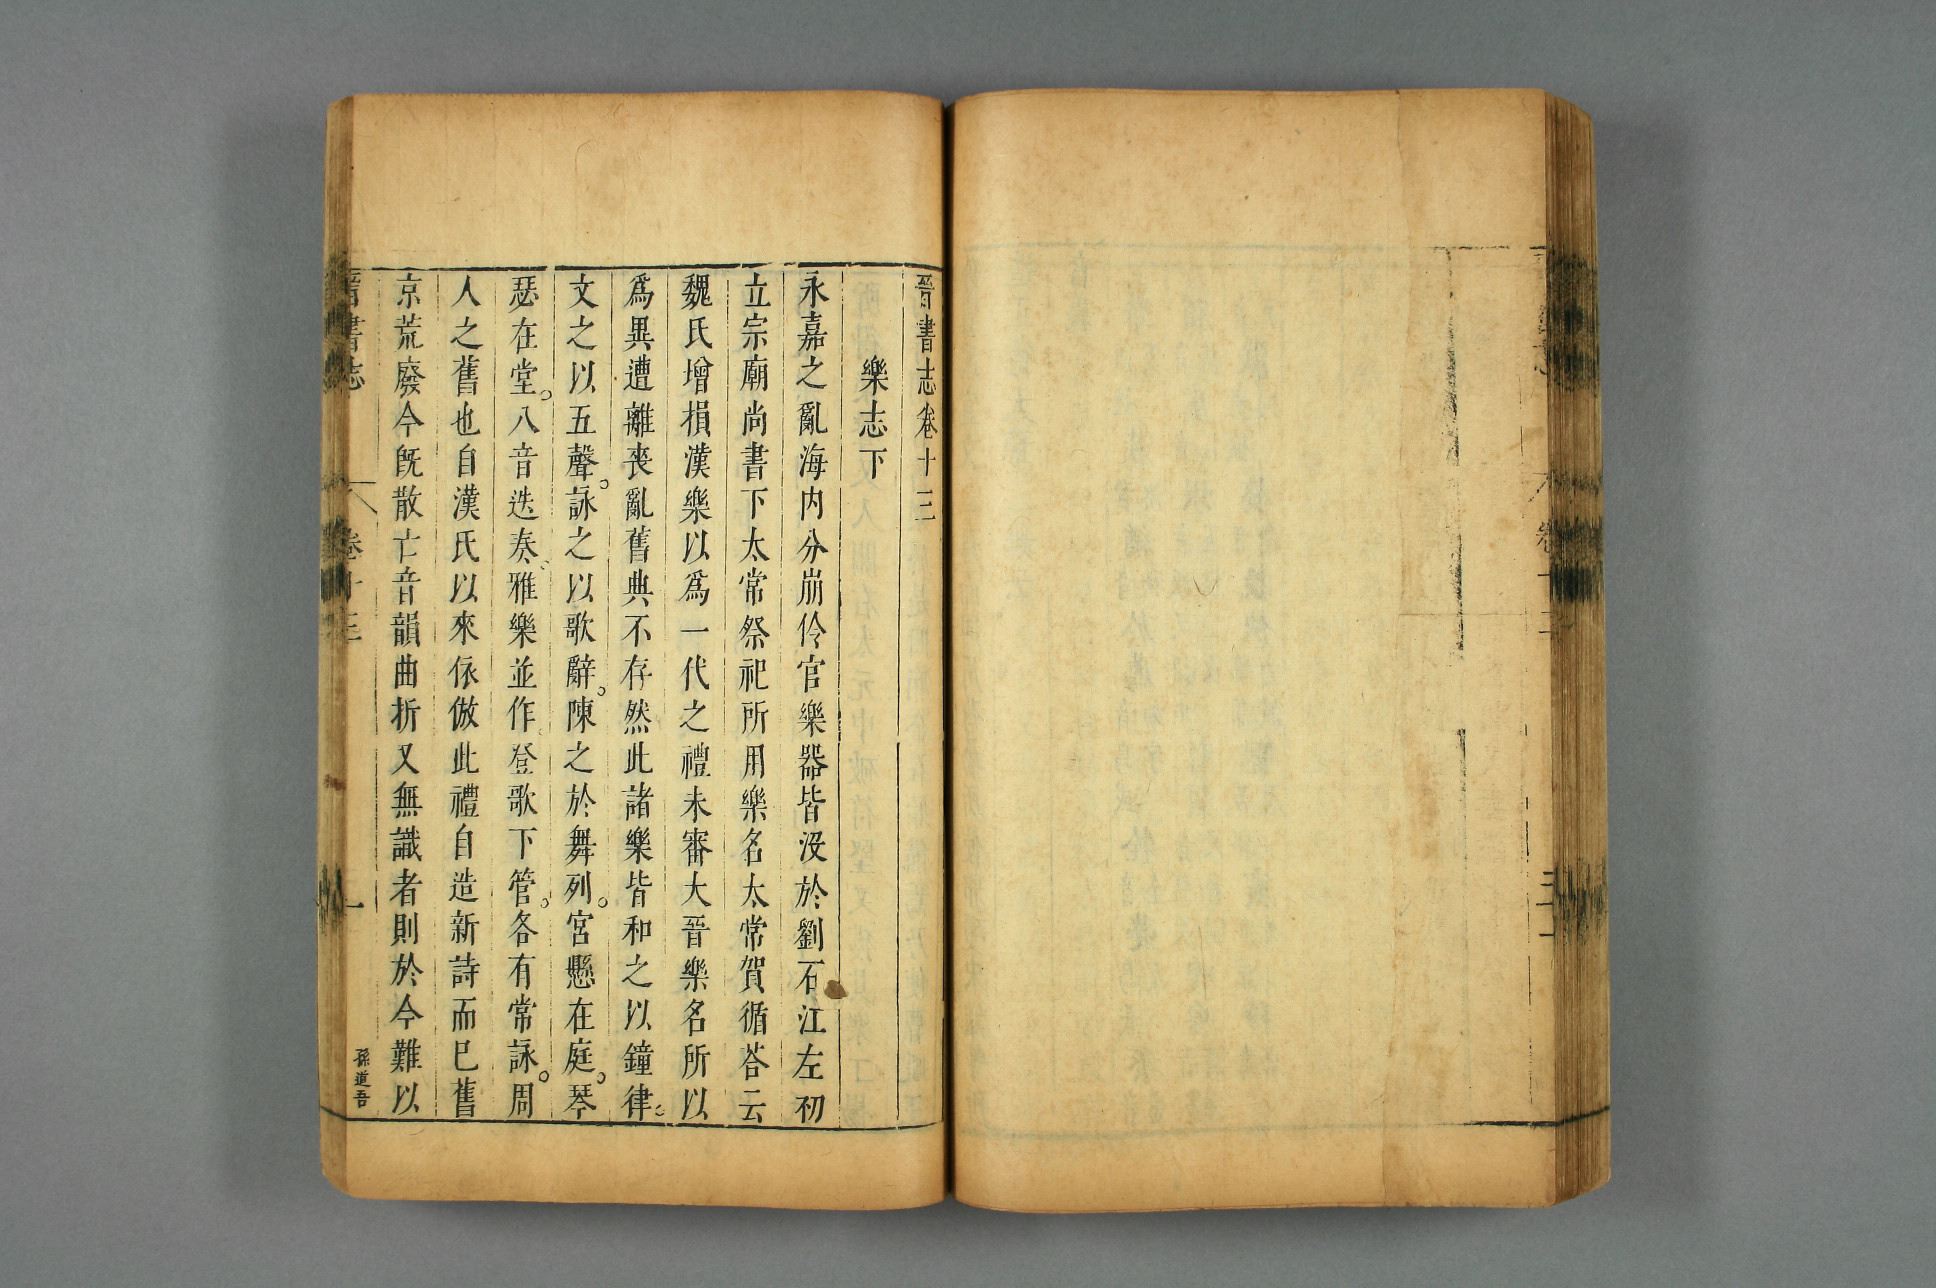 晉書志卷十三
樂志下
永嘉之亂海内分崩伶官樂器皆没於劉石江左初
立宗廟尚書下太常祭祀所用樂名太常賀循荅云
魏氏增損漢樂以爲一代之禮未審大晉樂名所以
爲異遭離喪亂舊典不存然此諸樂皆和之以鐘律。
文之以五聲。詠之以歌辭。陳之於舞列。宮懸在庭。琴
瑟在堂。八音迭奏、雅樂並作。登歌下管。各有常詠。周
人之舊也自漢氏以來依倣此禮自造新詩而已舊
京荒廢今旣散亡音韻曲折又無識者則於今難以
晉書志
卷十三
一
孫道吾